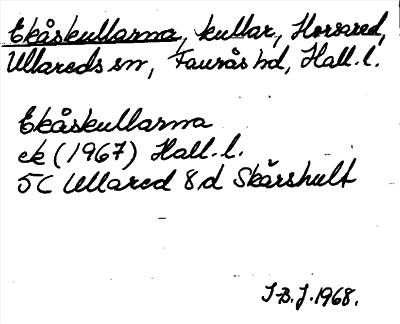 Ekåskullarna, kullar, Horsared,
Ullareds sn, Faurås hd, Hall. l.
Ekåskullarna
ek (1967) Hall. l.
5C Ullared 8d Skårshult
I B. J. 1968.